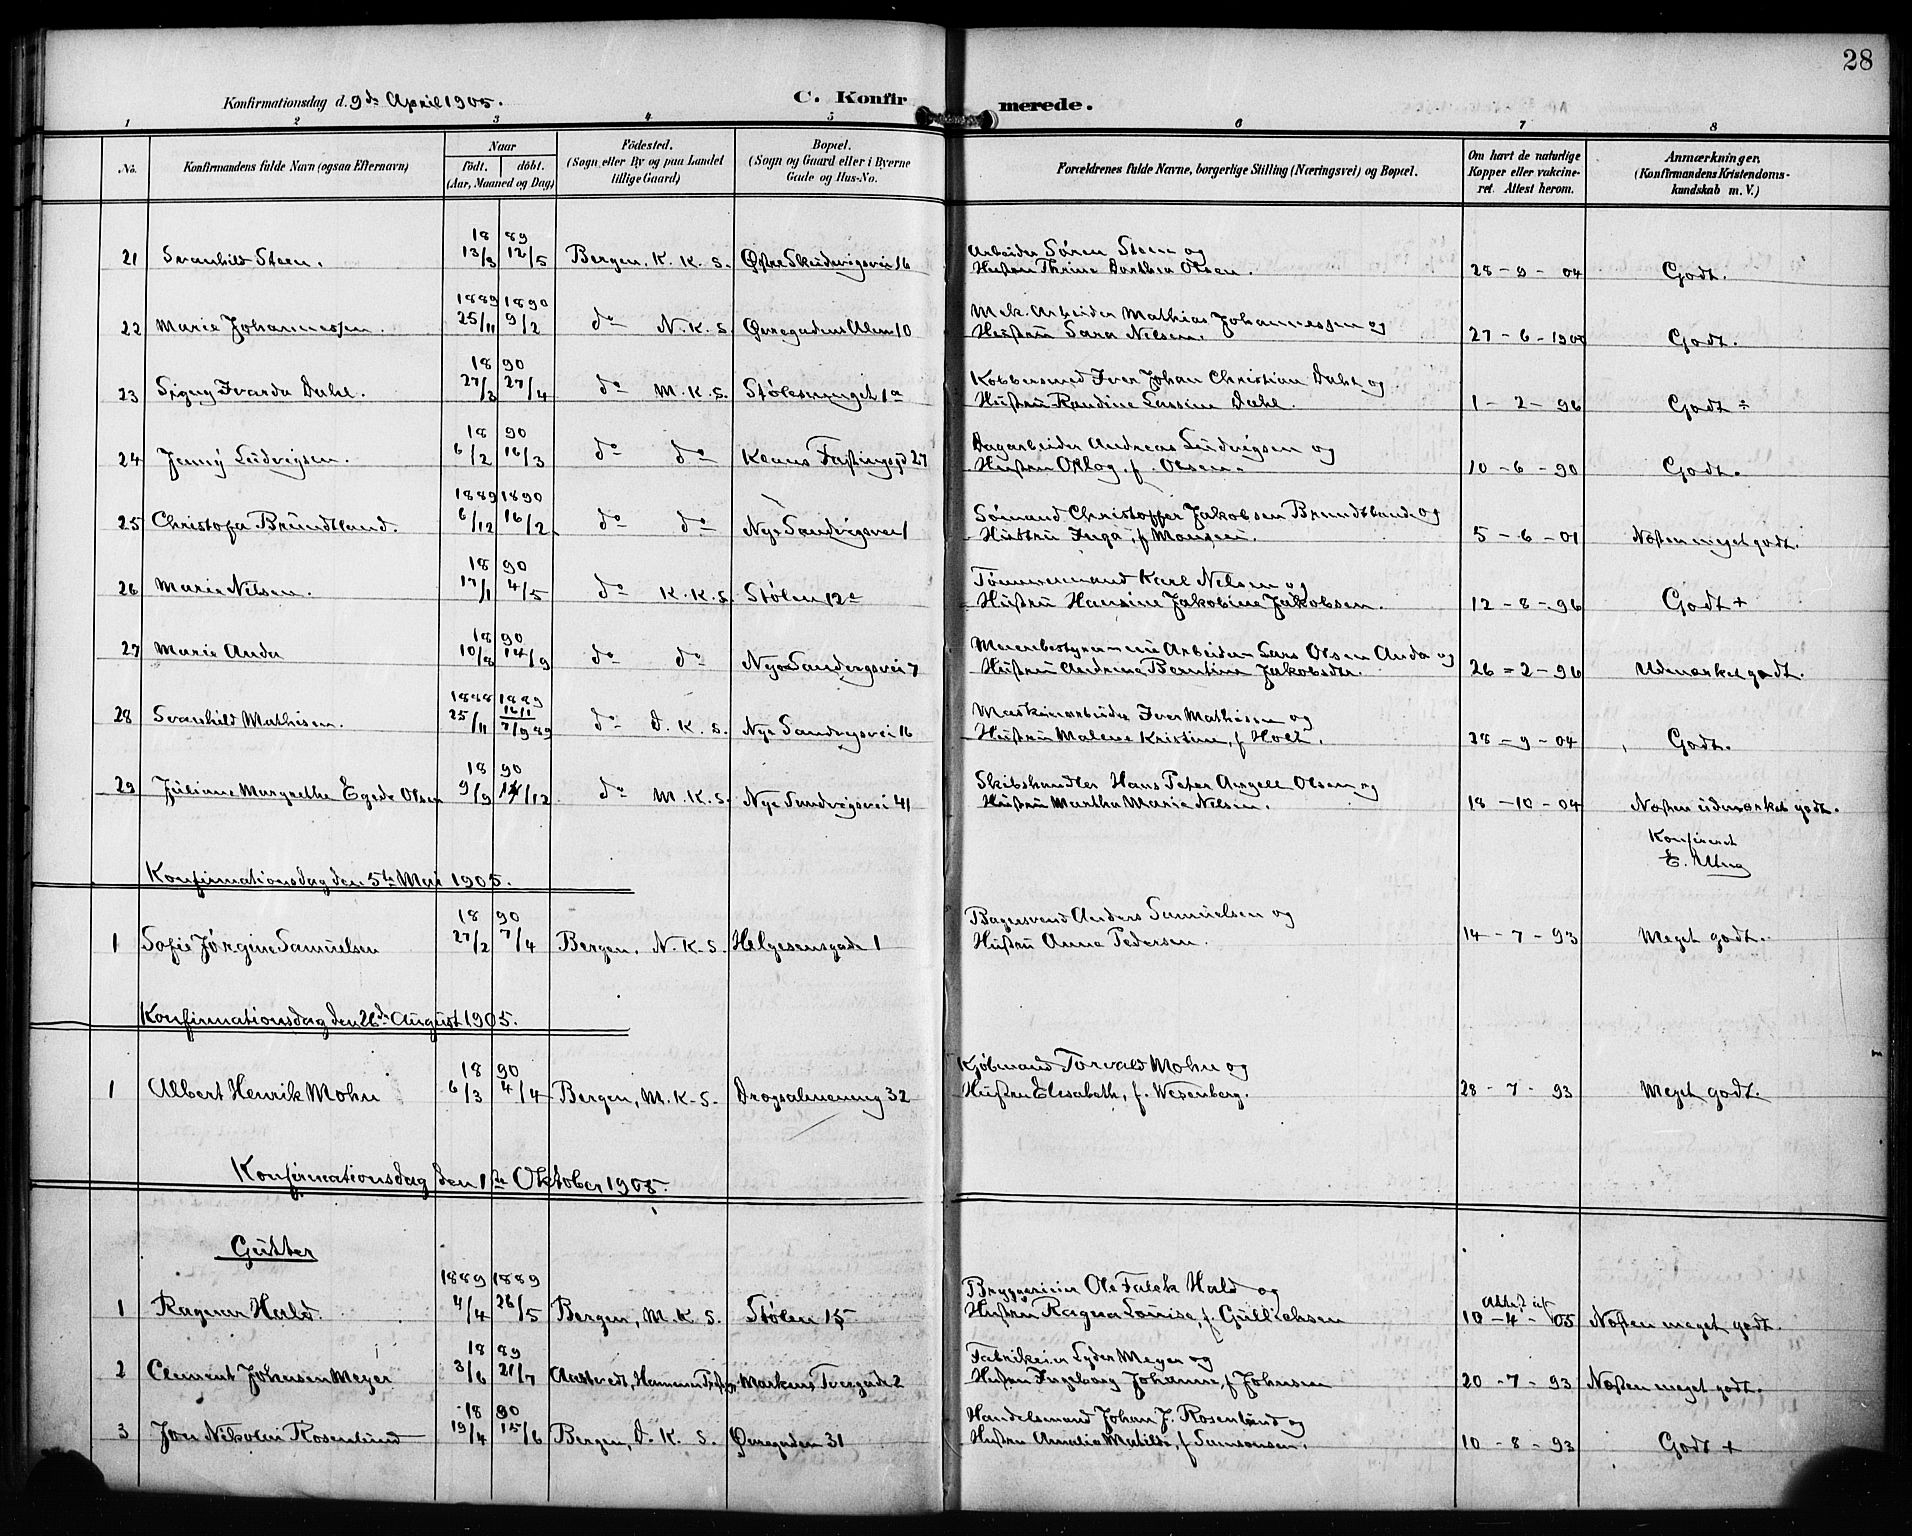 28
Konfirmationsdag d. 9de April 1905.
C. Konfirmerede.
1 2 3 4 5 6 7 8
No.
Konfirmandens fulde Navn (ogsaa Efternavn)
Naar
født. døbt.
(Aar, Maaned og Dag)
Födested.
(Sogn eller By og paa Landet
tillige Gaard)
Bopæl.
(Sogn og Gaard eller i Byerne
Gade og Hus-No.
Forældrenes fulde Navne, borgerlige Stilling (Næringsvei) og Bopæl.
Om havt de naturlige
Kopper eller vakcine-
ret. Attest herom.
Anmærkninger.
(Konfirmandens Kristendoms-
kundskab m. V.)
18 89 Arbeider Sören Steen og
21 Svanhild Steen. 13/3 12/5 Bergen, K. K. S. Øvre Skudevigsvei 16 Hustru Thrine Dorthea Olsen. 28 - 9 - 04 Godt.
1889 1890 Mek. Arbeider Mathias Johannessen og
22 Marie Johannessen. 25/11 9/2 do N. K. S. Øvregadens Alm 10 Hustru Sara Nilsen. 27 - 6 - Godt.
18 90 Kobbersmed Iver Johan Christian Dahl og
23 Signy Ivarda Dahl. 27/3 27/4 do M. K. S. Stølesmuget 1a Hustru Randine Lassine Dahl. 1 - 2 - 96 Godt ÷
18 90 Dagarbeider Andreas Ludvigsen og
24 Jenny Ludvigsen. 6/2 16/3 do do Klaus Fastings 27 Hustru f. Olsen. 10 - 6 - 90 Godt.
1889 1890 Sømand Christoffer Jakobsen Brundtland og
25 Christofa Brundtland. 6/12 16/2 do do Nye Sandvigsvei 1 Hustru Inga, f. Monsen. 5 - 6 - 01 Næsten meget godt.
18 90 Tømmermand Karl Nilsen og
26 Marie Nilsen. 17/1 4/5 do K. K. S. Stølen 12a Hustru Hansine Jakobine Jakobsen. 12 - 8 - 96 Godt +
18 90 Meieribestyrer Arbeider Lars Olsen Anda og
27 Marie Anda 10/8 14/9 do do Nye Sandvigsvei 7 Hustru Andrine Berntine Jakobsdtr. 26 = 2 - 96 Udmærket godt.
1888 1889 Maskinarbeider Iver Mathisen og
28 Svanhild Mathisen. 25/11 16/1 7/9 89 do D. K. S. Nye Sandvigsvei 16 Hustru Malene Kristine, f. Holt. 28 - 9 - 04 Godt.
18 90 Skibshandler Hans Peter Angell Olsen og
29 Juliane Margrethe Egede Olsen 9/9 14/12 do M. K. S. Nye Sandvigsvei 41 Hustru Martha Marie Nilsen. 18 - 10 - 04 Næsten udmærket godt.
Konfereret
Konfirmationsdag den 5te Mai 1905.
18 90 Bagersvend Anders Samuelsen og
1 Sofie Jørgine Samuelsen 27/2 7/4 Bergen, N. K. S. Helgesensgade 1 Hustru Anna Pedersen. 14 - 7 - 93 Meget godt.
Konfirmationsdag den 26de August 1905.
18 90 Kjøbmand Torvald Mohn og
1 Albert Henrik Mohn 6/3 4/4 Bergen, M. K. S. Dragsalmenning 32 Hustru Elisabeth, f. Wesenberg. 28 - 7 - 93 Meget godt.
Konfirmationsdag den 1ste Oktober 1905.
Gutter
1889 1889 Bryggerieier Ole Falck Hald og
1 Ragnar Hald. 4/4 26/5 Bergen, M. K. S. Stølen 15 Hustru Ragna Louise, f. Gullachsen Attest af 10 - 4 - 05 Næsten meget godt.
18 89 Fabrikeier Lyder Meyer og
2 Clement Johnsen Meyer 3/6 21/7 Markus Tvergade 2 Hustru Ingeborg Johanne, f. Johnsen 20 - 7 - 93 Næsten meget godt.
18 90 Handelsmand Johan J. Rosenlund og
3 Jon Nikolai Rosenlund 19/4 15/6 Bergen, D. K. S. Øvregaden 31 Hustru Amalia Matilde, f. Samsonsen. 10 - 8 - 93 Godt +